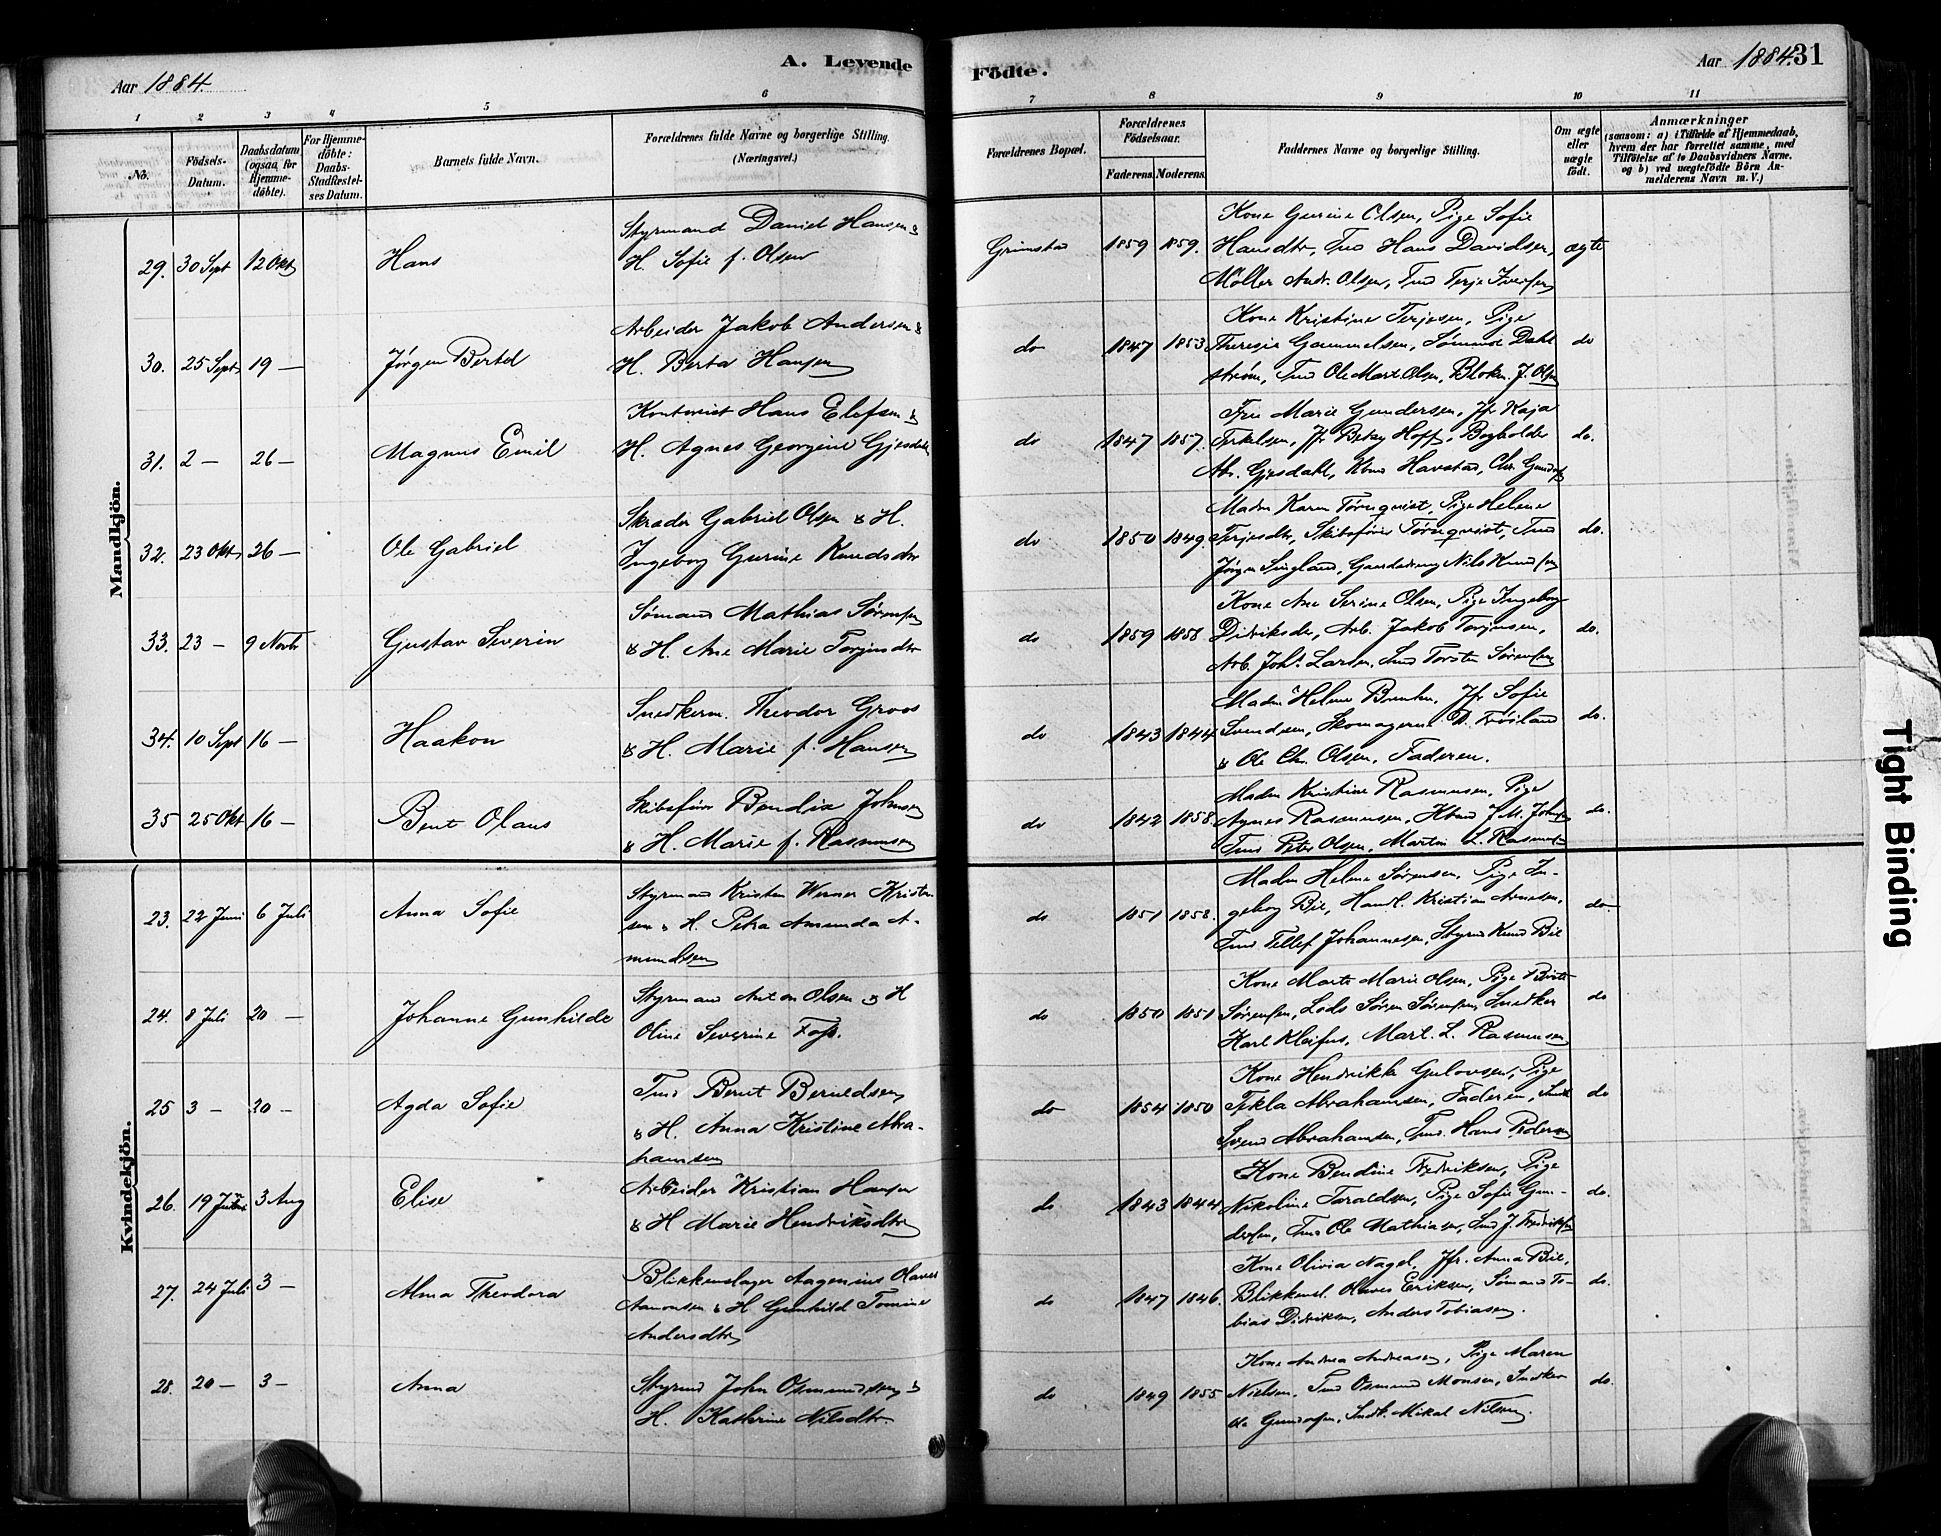 Aar 1884.
A. Levende
Födte.
Aar 1884. 31
1 2 3 4 5 6
7 8 9 10 11
No.
Födsels-Datum.
Daabsdatum (ogsaa for Hjemme-döbte).
For Hjemme-döbte: Daabs-Stadfæstel-ses Datum.
Barnets fulde Navn.
Forældrenes fulde Navne og borgerlige Stilling.
(Næringsvei.)
Forældrenes Bopæl.
Forældrenes Födselsaar.
Faderens. Moderens.
Faddernes Navne og borgerlige Stilling.
Om ægte eller uægte födt.
Anmærkninger
(saasom: a) i Tilfælde af Hjemmedaab,
hvem der har forrettet samme, med
Tilföielse af to Daabsvidners Navne.
og b) ved uægtefödte Börn An-
melderens Navn m. V.)
Mandkjön.
29. 30 Sept 12 Okt Hans
Styrmand Daniel Hansen &
H. Sofie f. Olsen
Grimstad 1859 1859.
Kone Gurine Olsen, Pige Sofie
Hansdtr, Tmd Hans Davidsen,
Möller Andr. Olsen, Tmd Terje Iversen
ægte
30. 25 Sept 19 — Jørgen Bertel
Arbeider Jakob Andersen &
H. Berta Hansen
do 1847 1853
Kone Kristine Terjesen, Pige
Theresia Gammelsen, Sømand Dahl
strøm, Tmd Ole Mart. Olsen, Blokm. J. Olsen
do
31. 2 — 26 — Magnus Emil
Kontorist Hans Elefsen &
H. Agnes Georgine Gjesdahl
do 1847 1857.
Fru Marie Gundersen, Jfr Kaja
Terkelsen, Jfr Betzy Hoff, Bogholder
Abr. Gjesdahl, Havstad, Chr. Gundersen
do.
32. 23 Okt 26 — Ole Gabriel
Skræder Gabriel Olsen & H.
Ingeborg Gurine Knudsdtr
do 1850 1849.
Madm Karen Tørnqvist, Pige Helene
Terjesdtr, Skibsfører Tørnqvist, Tmd
Jørgen Lingland, Nils Knudsen
do.
33. 23 — 9 Novb Gustav Severin
Sømand Mathias Sørensen
& H. Ane Marie Torjusdtr
do 1859 1858
Kone Ane Serine Olsen, Pige Ingeborg
Didriksdr, Arb. Jakob Torjusen,
Arb. Johs Larsen, Tmd Torsten Sørensen
do.
34. 10 Sept 16 — Haakon
Snedkerm. Theodor Groos
& H. Marie f. Hansen
do 1843 1844
Madm Helene Jfr Sofie
Svendsen, Skomagerne Frøiland
& Ole Chr. Olsen, Faderen.
do.
35 25 Okt 16 — Bent Olaus
Skibsfører Bendix Johnsen
& H. Marie f. Rasmusen
do 1842 1858.
Madm Kristine Rasmusen, Pige
Agnes Rasmusen, J. M. Johnsen
Tmd Peter Olsen, Martin L. Rasmusen
do.
Kvindekjön.
23. 22 Juni 6 Juli Anna Sofie
Styrmand Kristen Werner Kristen
sen & H. Petra Amunda A-
mundsen
do 1851 1858.
Madm Helene Sørensen, Pige In-
geborg Bie, Handl. Kristian Arnesen,
Tmd Tellef Johannesen, Styrmd Knud Bie
do
24. 8 Juli 20 — Johanne Gunhilde
Styrmand Anton Olsen & H
Oline Severine Foss.
do 1850 1851
Kone Marte Marie Olsen, Pige
Sørensen, Lods Søren Sørensen, Snedker
Karl Kleifus, Mart. L. Rasmusen
do
25 3 — 20 — Agda Sofie
Tmd Bernt Berntsen
& H. Anna Kristine Abra-
hamsen
do 1854 1850
Kone Hendrikke Gulovsen, Pige
Tekla Abrahamsen, Faderen, Snedk
Svend Abrahamsen, Tmd. Hans Pedersen
do
26. 19 Juni 3 Aug Elise
Arbeider Kristian Hansen
& H Marie Hendriksdtr
do 1843 1844
Kone Bendine Fredriksen, Pige
Nikoline Taraldsen, Pige Sofie Gun-
dersen, Tmd Ole Mathiasen, Tmd J. Fredriksen
do.
27. 24 Juli 3 — Alma Theodora
Blikkenslager Aagenius Olaves
Aanonsen & H. Gunhild Tomine
Andersdtr
do 1847 1846.
Kone Olivia Nagel, Jfr. Anna Bie,
Blikkensl. Olaves Eriksen, Sømand To-
bias Didriksen, Anders Tobiasen.
do.
28. 20 — 3 — Anna
Styrmd John Osmundsen &
H. Kathrine Nilsdtr.
do 1849 1855
Kone Andrea Andreasen, Pige Maren
Nielsen, Tmd Osmund Monsen, Snedker
Ole Gundersen, Snedk. Mikal Nilsen.
do.
Tight Binding